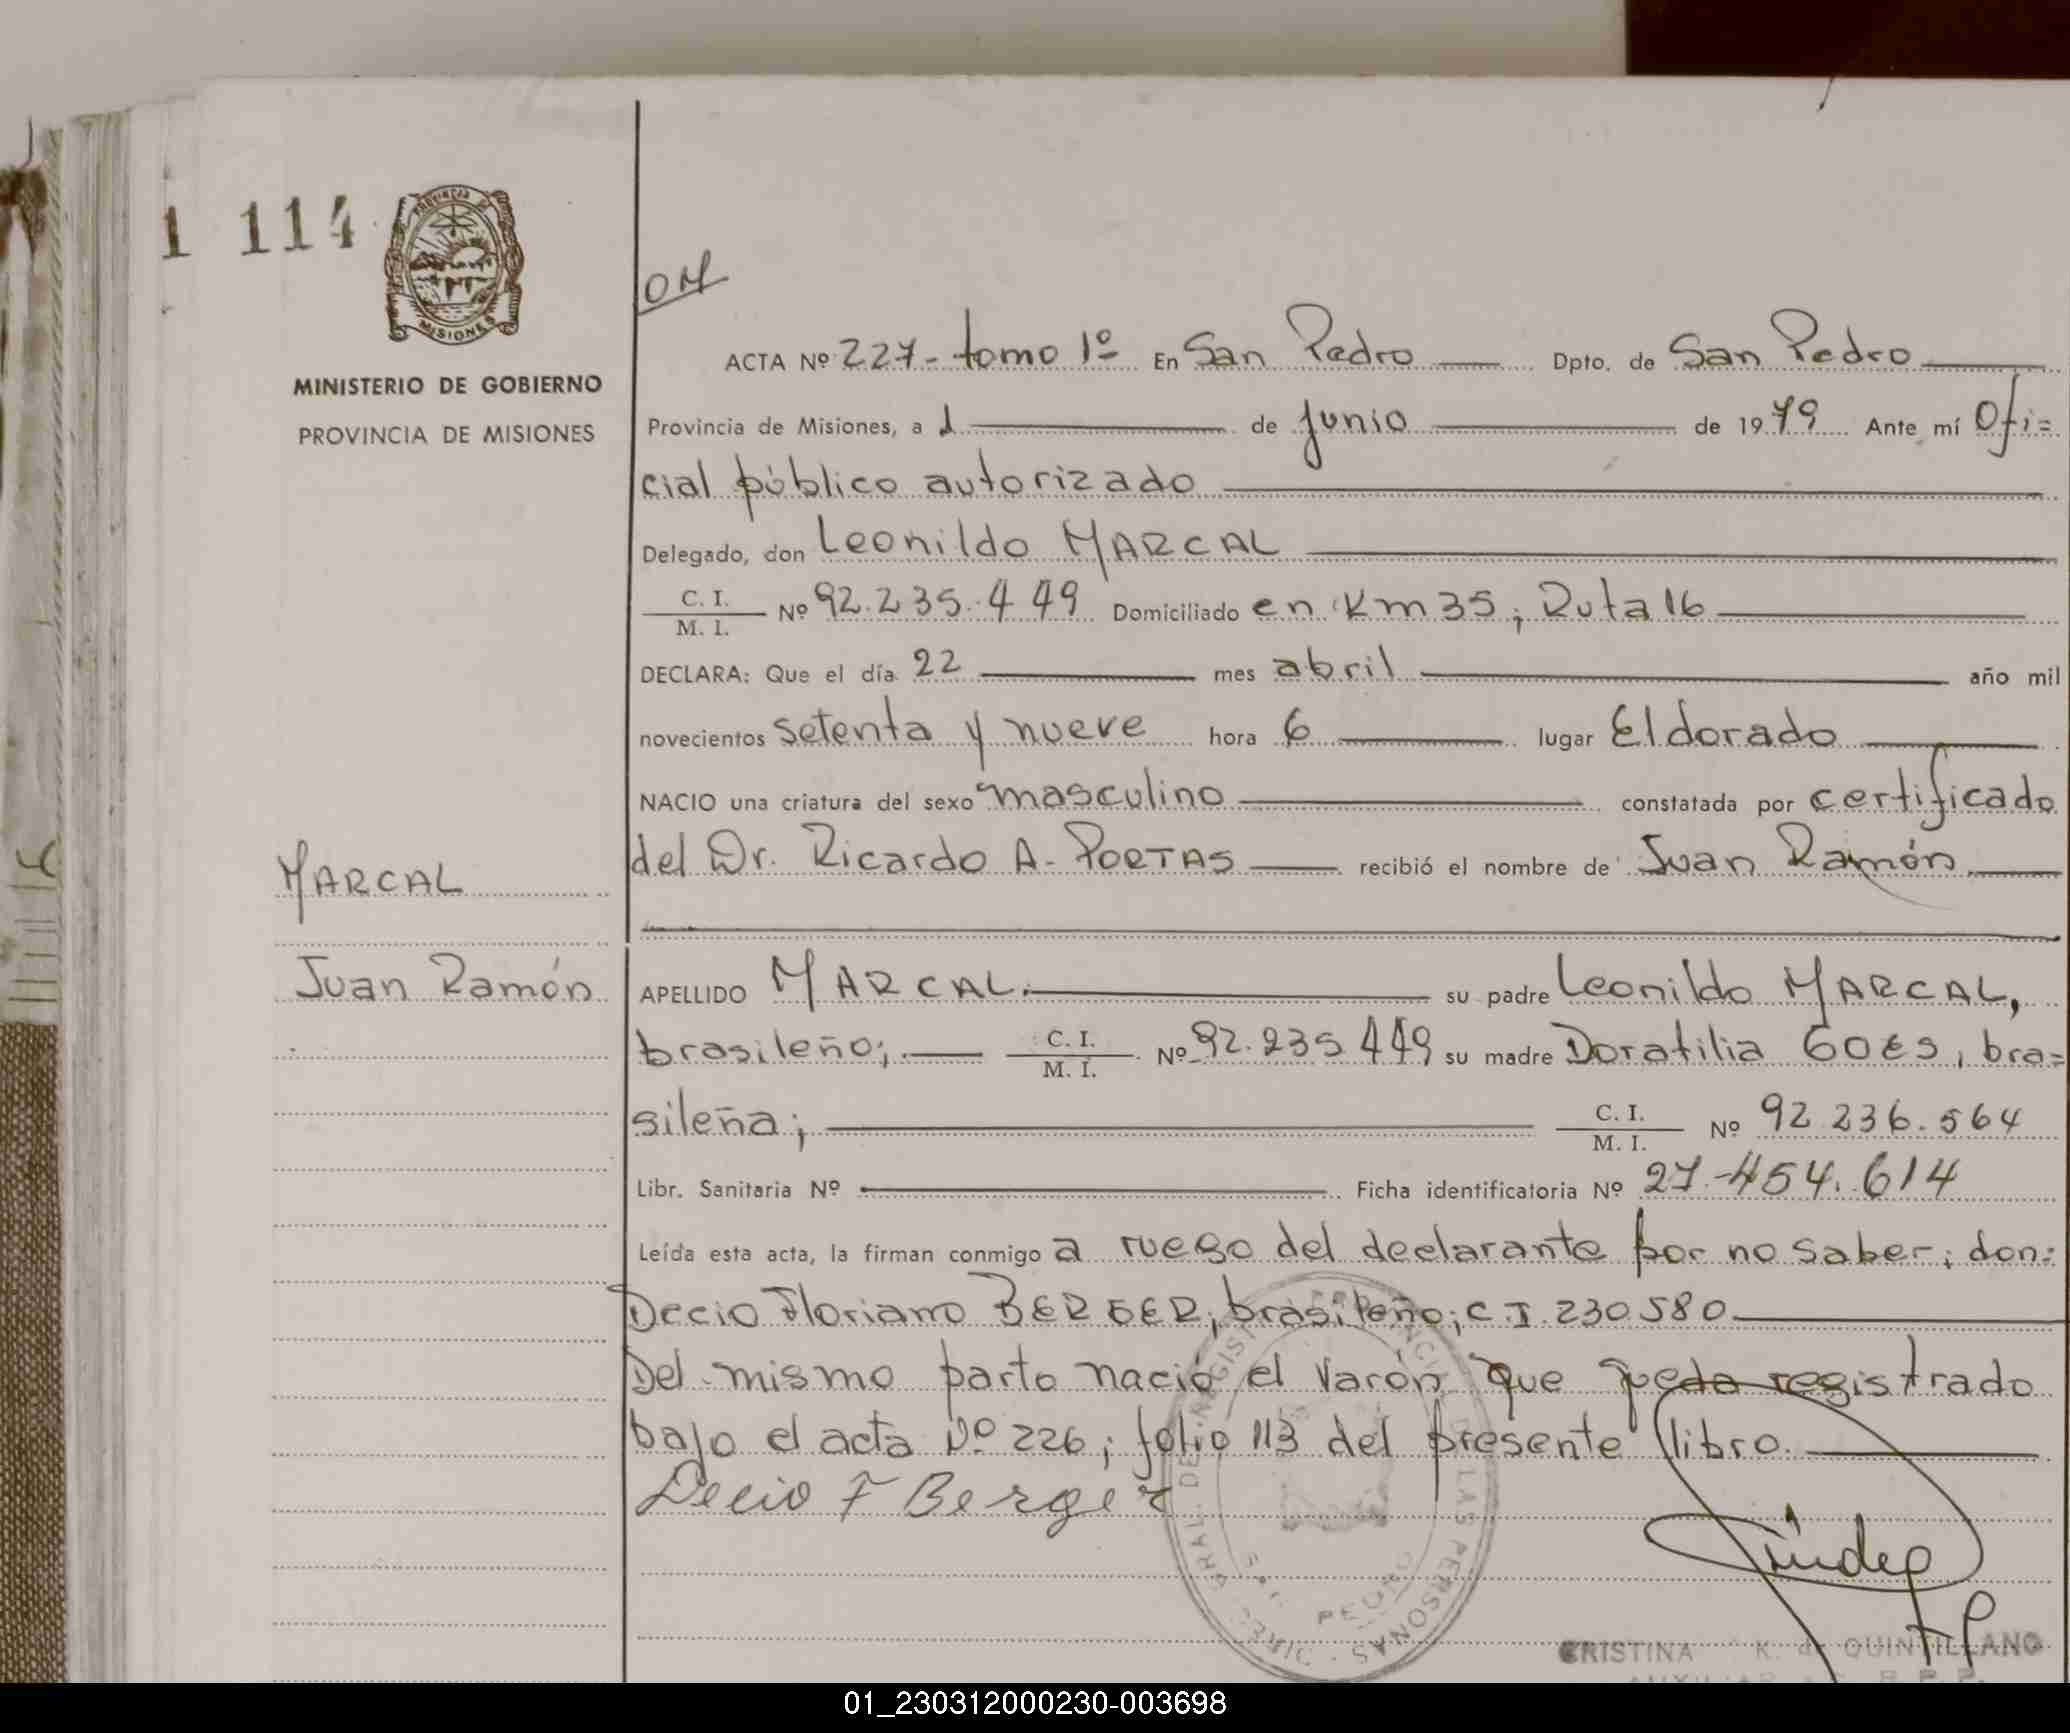 1 114
PROVINCIA DE
MISIONES
MINISTERIO DE GOBIERNO
PROVINCIA DE MISIONES
MARCAL
Juan Ramón
ACTA Nº 227- tomo 1º En San Pedro Dpto. de San Pedro
Provincia de Misiones, a 1 de junio de 1979 Ante mí Ofi=
cial público autorizado
Delegado, don Leonildo MARCAL
C. I. / M. I. Nº 92.235.449 Domiciliado en Km 35; Ruta 16
DECLARA: Que el día 22 mes abril año mil
novecientos setenta y nueve hora 6 lugar Eldorado
NACIO una criatura del sexo masculino constatada por certificado
del Dr. Ricardo A. PORTAS recibió el nombre de Juan Ramón
APELLIDO MARCAL. su padre Leonildo MARCAL,
brasileño; C. I. / M. I. Nº 92.235 449 su madre Doratilia GOES, bra=
sileña; C. I. / M. I. Nº 92 236.564
Libr. Sanitaria Nº Ficha identificatoria Nº 27-454.614
Leída esta acta, la firman conmigo a ruego del declarante por no saber; don:
Decio Floriano BERGER; brasileño; C.I. 230.580
Del mismo parto nació el varón que queda registrado
bajo el acta Nº 226; folio 113 del presente libro.
Decio F Berger
SAN PEDRO
CRISTINA K. de QUINTILLANO
01_230312000230-003698